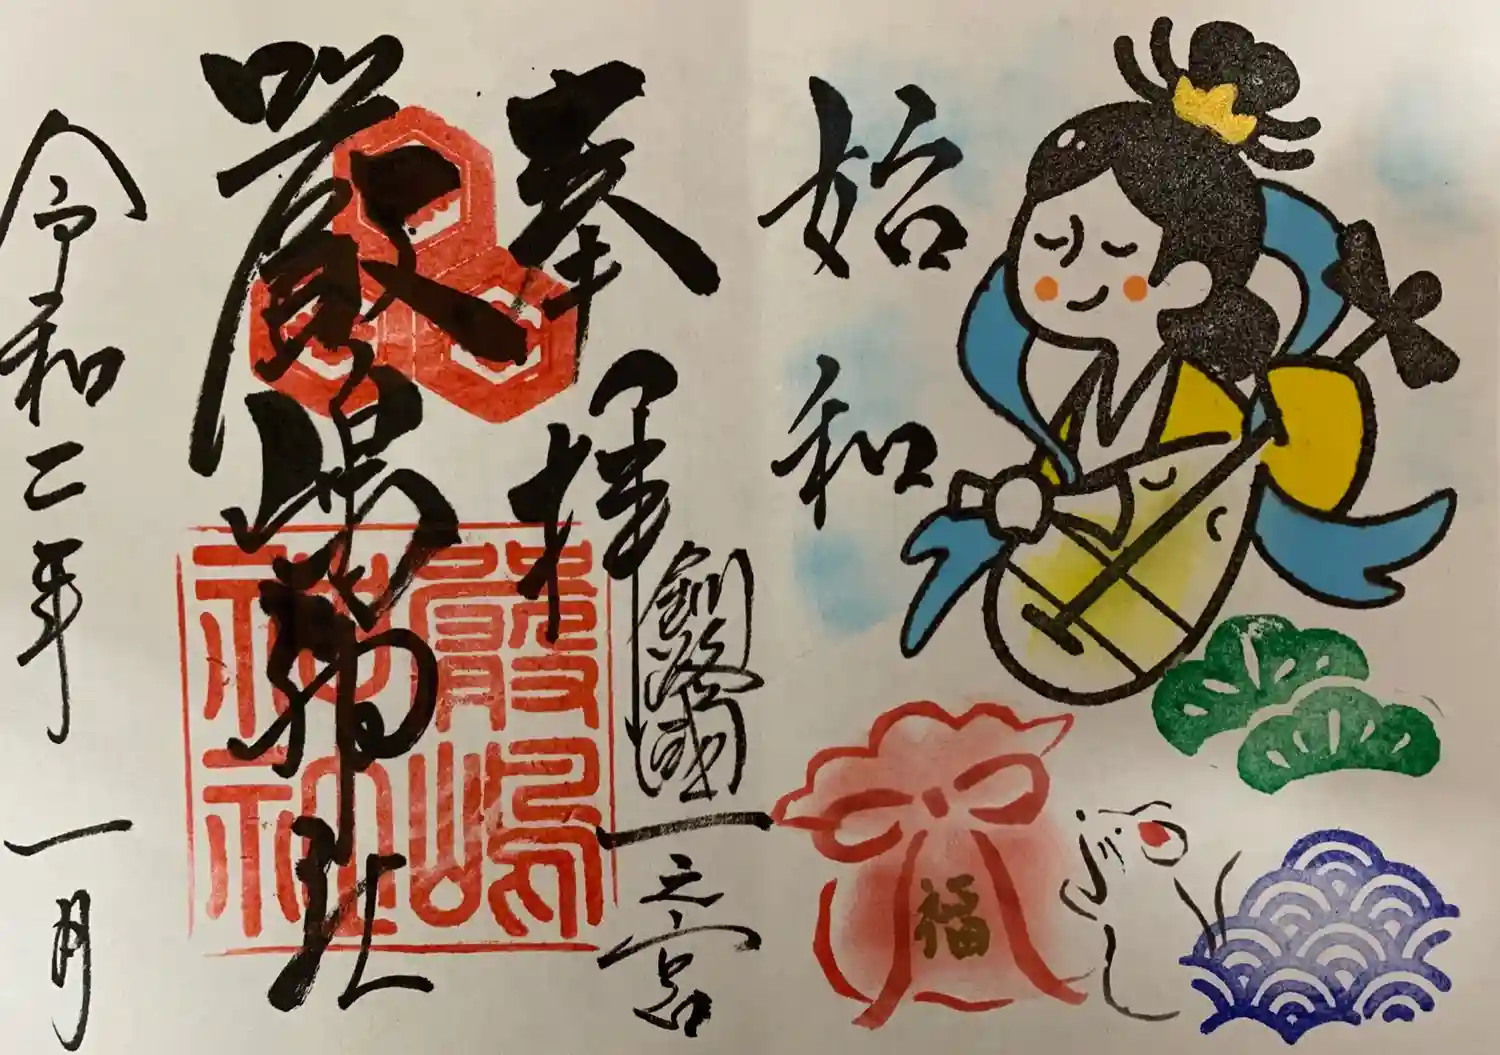 始和
福
奉拝
釧路國一之宮
厳嶋神社
嚴嶋神社
令和二年
一月